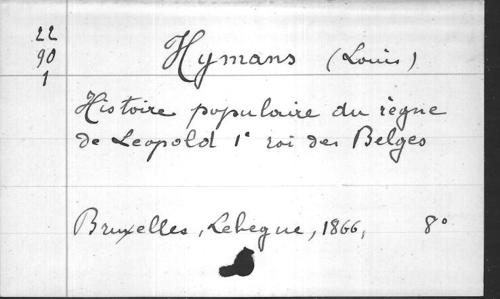 22
90
1
Hymans (Louis)
Histoire populaire du règne
de Leopold 1° roi des Belges
Bruxelles, Lebegue, 1866, 8°